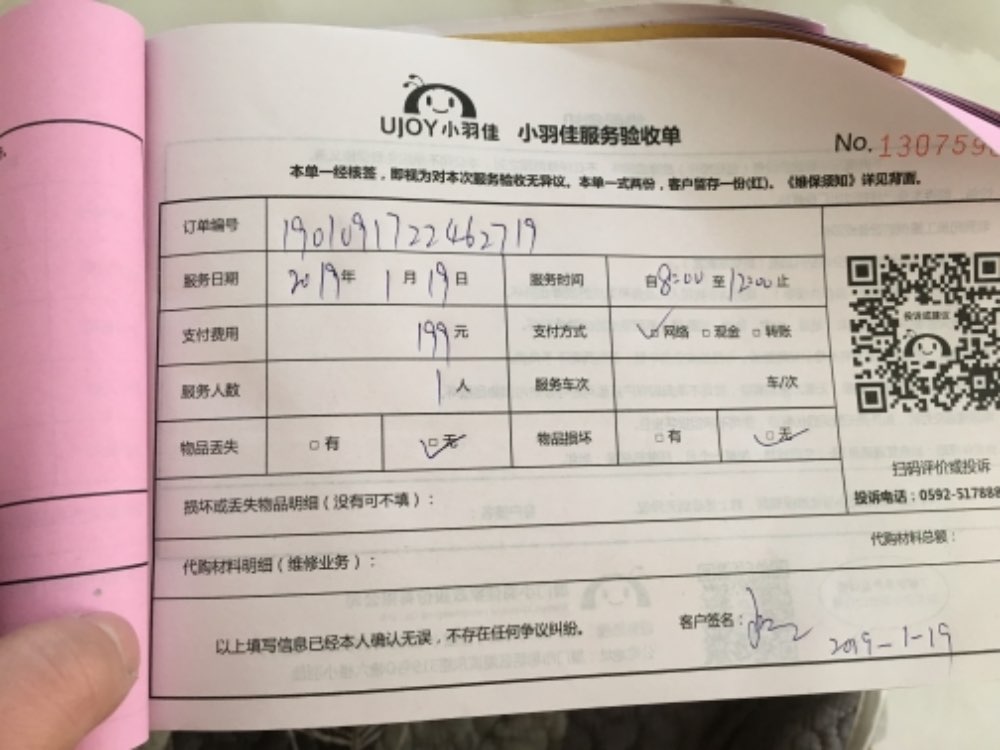 UJOY小羽佳 小羽佳服务验收单
No. 130759
本单一经核签，即视为对本次服务验收无异议。本单一式两份，客户留存一份(红)。《维保须知》详见背面。
订单编号 1901091722462719
服务日期 2019年 1月 19日 服务时间 自8:00至12:00止
支付费用 199元 支付方式 □网络 □现金 □转账
投诉或建议
服务人数 1人 服务车次 车/次
物品丢失 □有 □无 物品损坏 □有 □无
扫码评价或投诉
投诉电话：0592-517888
损坏或丢失物品明细（没有可不填）：
代购材料明细（维修业务）： 代购材料总额：
以上填写信息已经本人确认无误，不存在任何争议纠纷。 客户签名：
2019-1-19